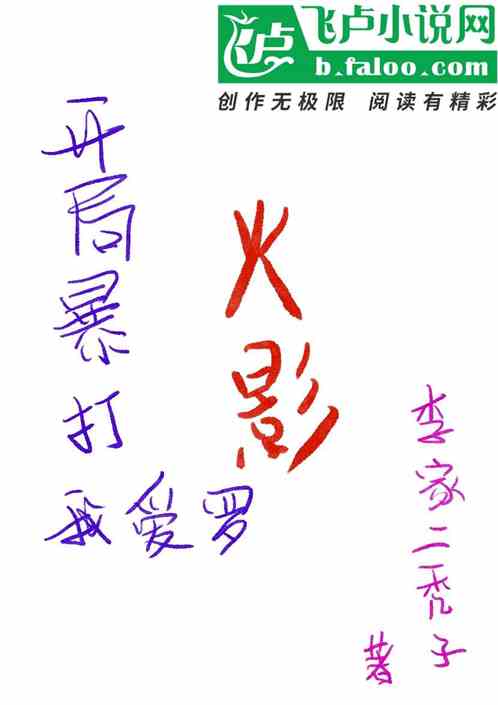 飞卢小说网
b.faloo.com
创作无极限 阅读有精彩
火影
开局暴打
我爱罗
李家二秃子
著